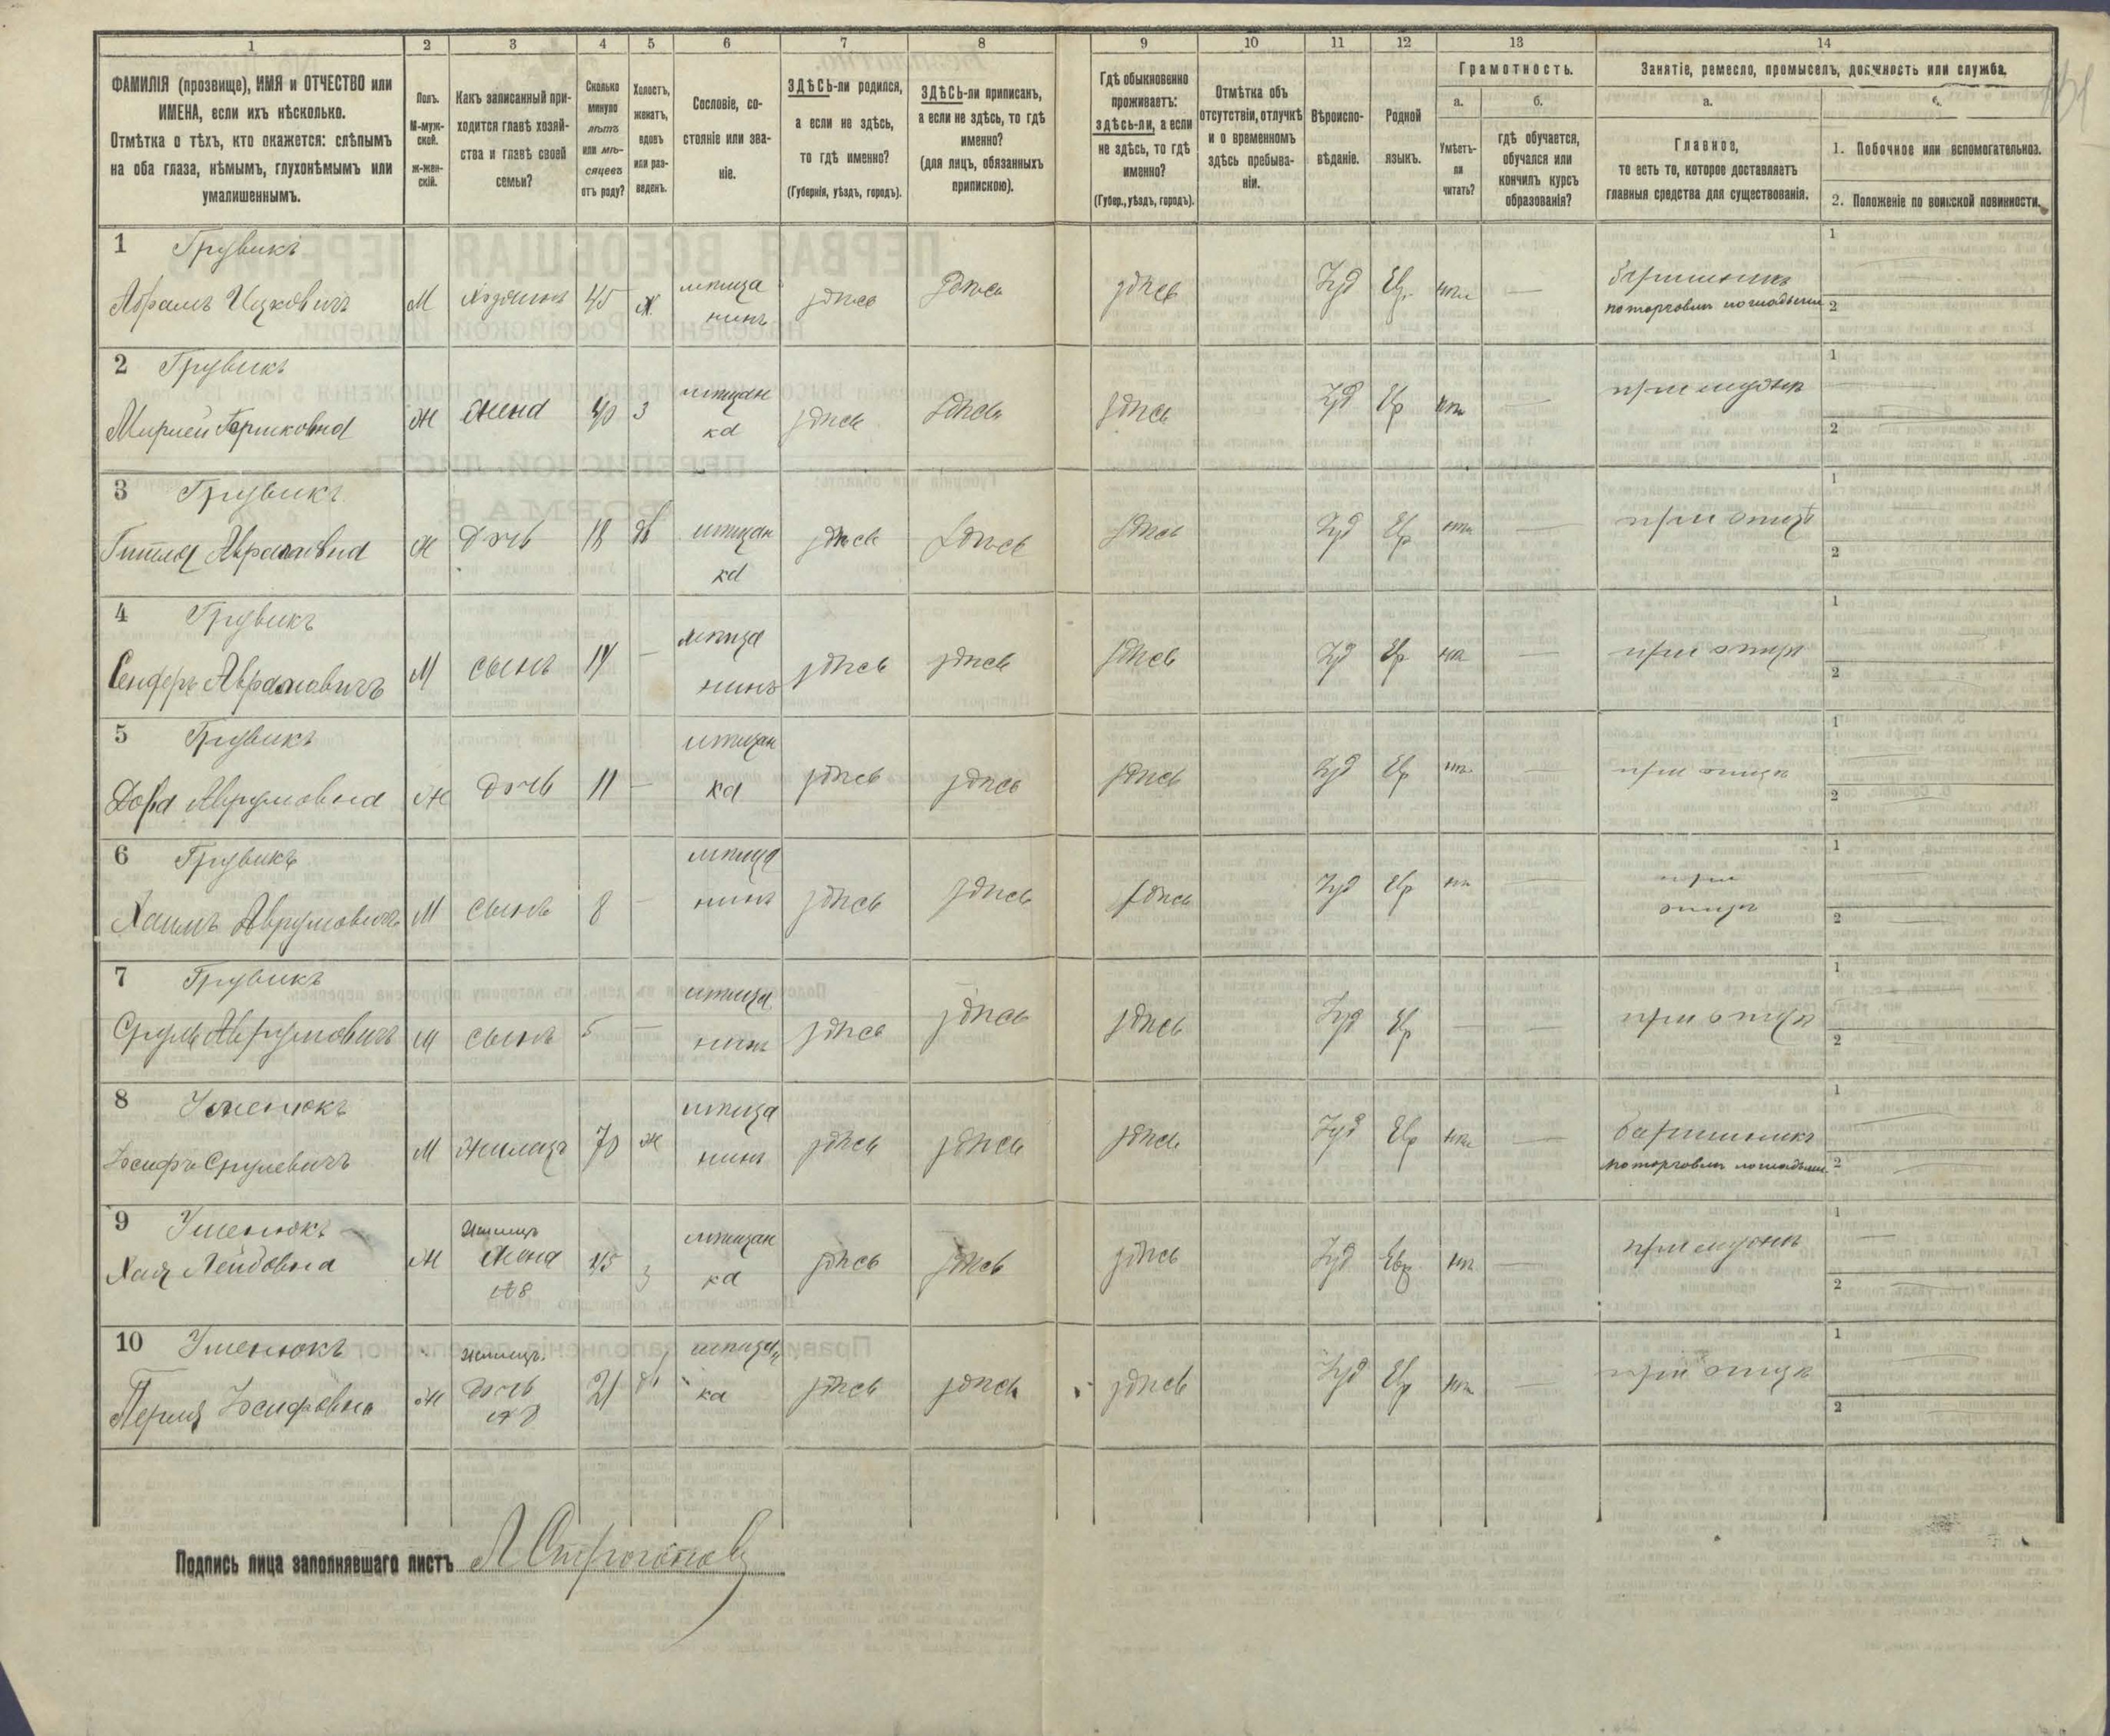 1 2 3 4 5 6 7 8 9 10 11 12 13 14
ФАМИЛІЯ (прозвище), ИМЯ и ОТЧЕСТВО или ИМЕНА, если ихъ нѣсколько.
Отмѣтка о тѣхъ, кто окажется: слѣпымъ на оба глаза, нѣмымъ, глухонѣмымъ или умалишеннымъ.
Полъ.
М-муж-
ской.
ж-жен-
скій.
Какъ записанный при-
ходится главѣ хозяй-
ства и главѣ своей
семьи?
Сколько
минуло
лѣтъ
или мѣ-
сяцевъ
отъ роду?
Холостъ,
женатъ,
вдовъ
или раз-
веденъ.
Сословіе, со-
стояніе или зва-
ніе.
ЗДѢСЬ-ли родился,
а если не здѣсь,
то гдѣ именно?
(Губернія, уѣздъ, городъ).
ЗДѢСЬ-ли приписанъ,
а если не здѣсь, то гдѣ
именно?
(для лицъ, обязанныхъ
припискою).
Гдѣ обыкновенно
проживаетъ:
здѣсь-ли, а если
не здѣсь, то гдѣ
именно?
(Губер., уѣздъ, городъ).
Отмѣтка объ
отсутствіи, отлучкѣ
и о временномъ
здѣсь пребыва-
ніи.
Вѣроиспо-
вѣданіе.
Родной
языкъ.
Грамотность.
а.
Умѣетъ-
ли
читать?
б.
гдѣ обучается,
обучался или
кончилъ курсъ
образованія?
Занятіе, ремесло, промыселъ, должность или служба.
а.
Главное,
то есть то, которое доставляетъ
главныя средства для существованія.
1. Побочное или вспомогательное.
2. Положеніе по воинской повинности.
1 Грувикъ
Абрамъ Ицковичъ М Хозяинъ 45 ж мѣща
нинъ здѣсь здѣсь здѣсь Іуд Евр нѣт —
по торговли лошадьми
1
2
2 Грувикъ
Ж жена 40 з мѣщан
ка здѣсь здѣсь здѣсь Іуд Евр нѣт — при мужѣ
1
2
3 Грувикъ
Гитля Аврамовна Ж дочь 18 дѣ мѣщан
ка здѣсь здѣсь здѣсь Іуд Евр нѣт — при отцѣ
1
2
4 Грувикъ
Аврамовичъ М сынъ — мѣща
нинъ здѣсь здѣсь здѣсь Іуд Евр нѣт — при отцѣ
1
2
5 Грувикъ
Дора Аврумовна Ж дочь 11 — мѣщан
ка здѣсь здѣсь здѣсь Іуд Евр нѣт — при отцѣ
1
2
6 Грувикъ
Хаимъ Аврумовичъ М сынъ 8 — мѣща
нинъ здѣсь здѣсь здѣсь Іуд Евр нѣт — при
отцѣ
1
2
7 Грувикъ
Сруль Аврумовичъ М сынъ 5 — мѣща
нинъ здѣсь здѣсь здѣсь Іуд Евр — — при отцѣ
1
2
8 Уменюкъ
Іосифъ Срулевичъ М жилецъ 70 ж мѣща
нинъ здѣсь здѣсь здѣсь Іуд Евр нѣт — барышникъ
по торговли лошадьми
1
2
9 Уменюкъ
Хая Лейбовна Ж жилецъ
жена
№ 8 45 з мѣщан
ка здѣсь здѣсь здѣсь Іуд Евр нѣт — при мужѣ
1
2
10 Уменюкъ
Перля Іосифовна Ж жилецъ
дочь
№ 8 21 дѣ мѣщан
ка здѣсь здѣсь здѣсь Іуд Евр нѣт — при отцѣ
1
2
Подпись лица заполнявшаго листъ